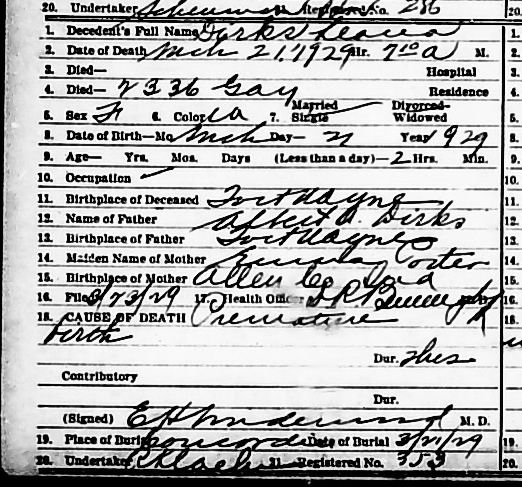 20. Undertaker Registered No. 286
1. Decedent's Full Name Dirks Leana
2. Date of Death Mch 21, 1929 Hr. 7 10 a M.
3. Died— Hospital
4. Died— 2336 Gay Residence
5. Sex F 6. Color W 7. Married Single Divorced- Widowed
8. Date of Birth—Mo. Mch Day— 21 Year 1929
9. Age— Yrs. Mos. Days (Less than a day)— 2 Hrs. Min.
10. Occupation
11. Birthplace of Deceased Fort Wayne
12. Name of Father Albert A. Dirks
13. Birthplace of Father Fort Wayne
14. Maiden Name of Mother Emma Porter
15. Birthplace of Mother Allen Co Ind
16. Filed 3/23/29 17. Health Officer
18. CAUSE OF DEATH Premature
birth
Dur. 2hrs
Contributory
Dur.
(Signed) M. D.
19. Place of Burial Concordia Date of Burial 3/21/29
20. Undertaker 21. Registered No. 353